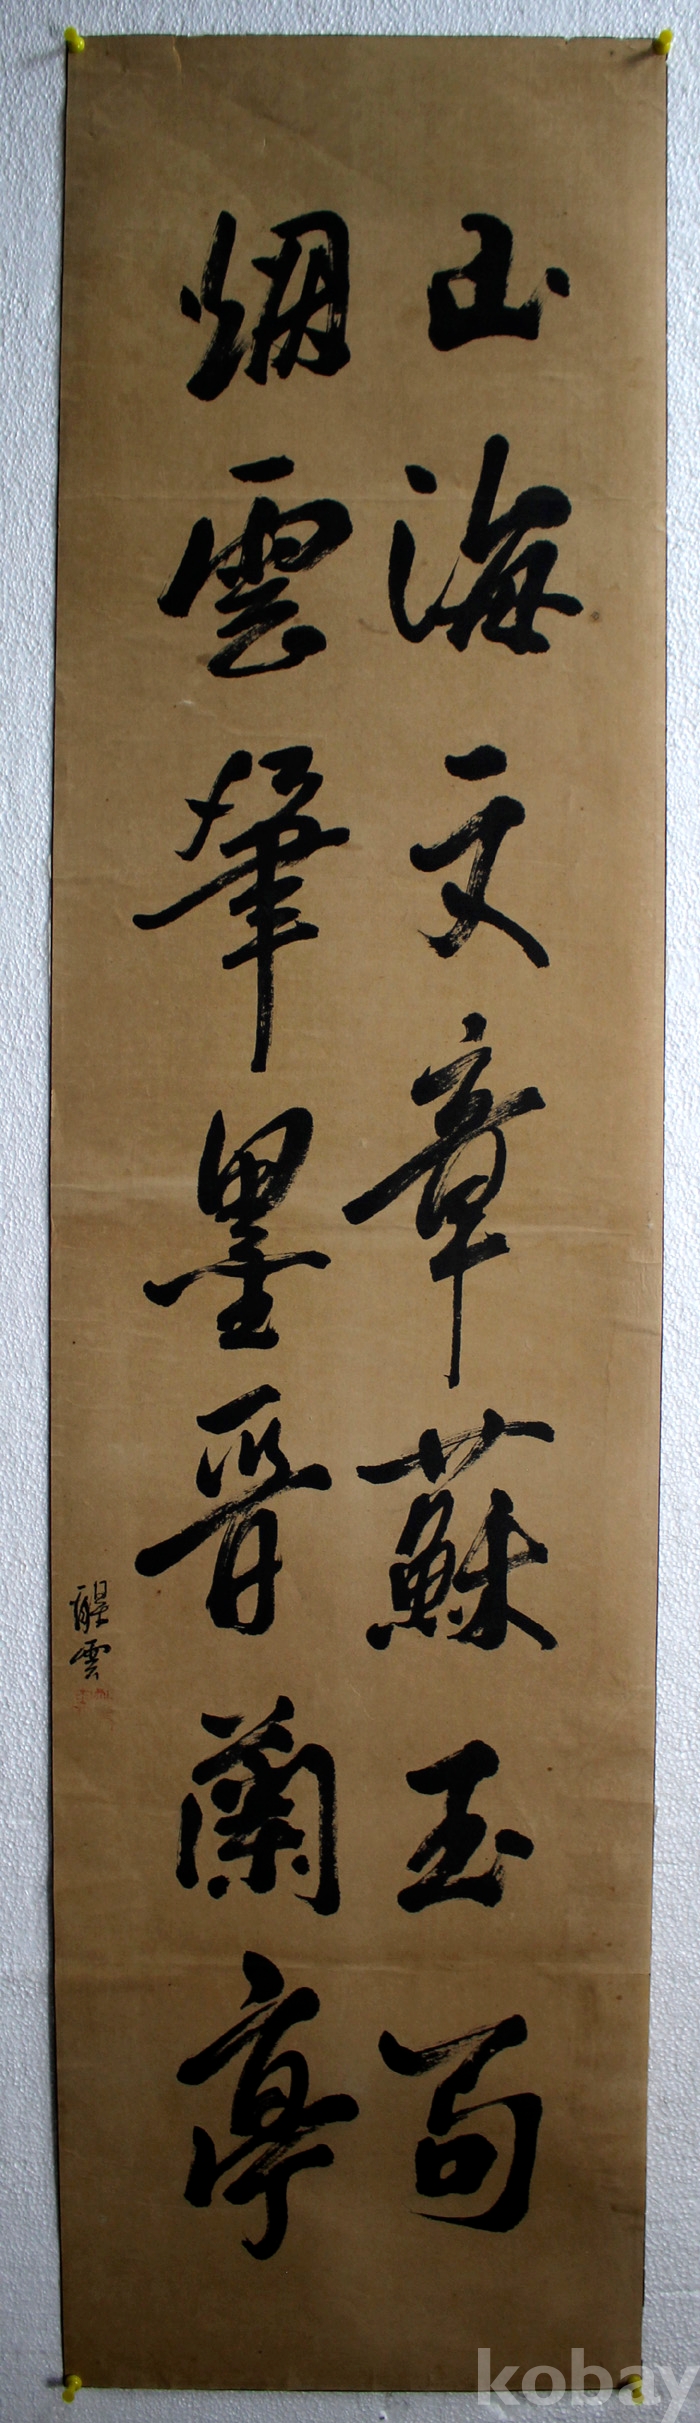 山海文章蘇玉局
烟雲筆墨晉蘭亭
醒雲
kobay